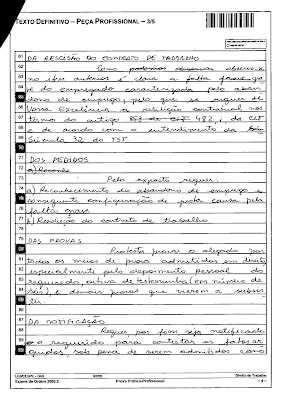 TEXTO DEFINITIVO – PEÇA PROFISSIONAL – 3/5
61 DA RESCISÃO DO CONTRATO DE TRABALHO
62 Como podemos observar
63 no item anterior é clara a falta grave
64 do empregado caracterizada pelo aban
65 dono de emprego, pelo que se requer de
66 Vossa Excelência a rescisão contratual nos
67 termos do artigo 482, i, da CLT
68 e de acordo com o entendimento da
69 Súmula 32 do TST.
70
71 DOS PEDIDOS
72 a) Reconhe
73 Pelo exposto requer:
74 a) Reconhecimento do abandono de emprego e
75 consequente configuração de justa causa pela
76 falta grave
77 b) Resolução do contrato de trabalho
78
79 DAS PROVAS
80 Protesta provar o alegado por
81 todos os meios de prova admitidos em direito
82 especialmente pelo depoimento pessoal do
83 requerido, oitiva de testemunha (em número de
84 seis), e demais provas que vierem a subsis
85 tir.
86
87 DA NOTIFICAÇÃO
88 Requer, por fim seja notificado
89 o requerido para contestar os fatos
90 sob pena de serem admitidos como
UnB/CESPE – OAB
Direito do Trabalho
Exame de Ordem 2009.2
Prova Prático-Profissional
– 4 –